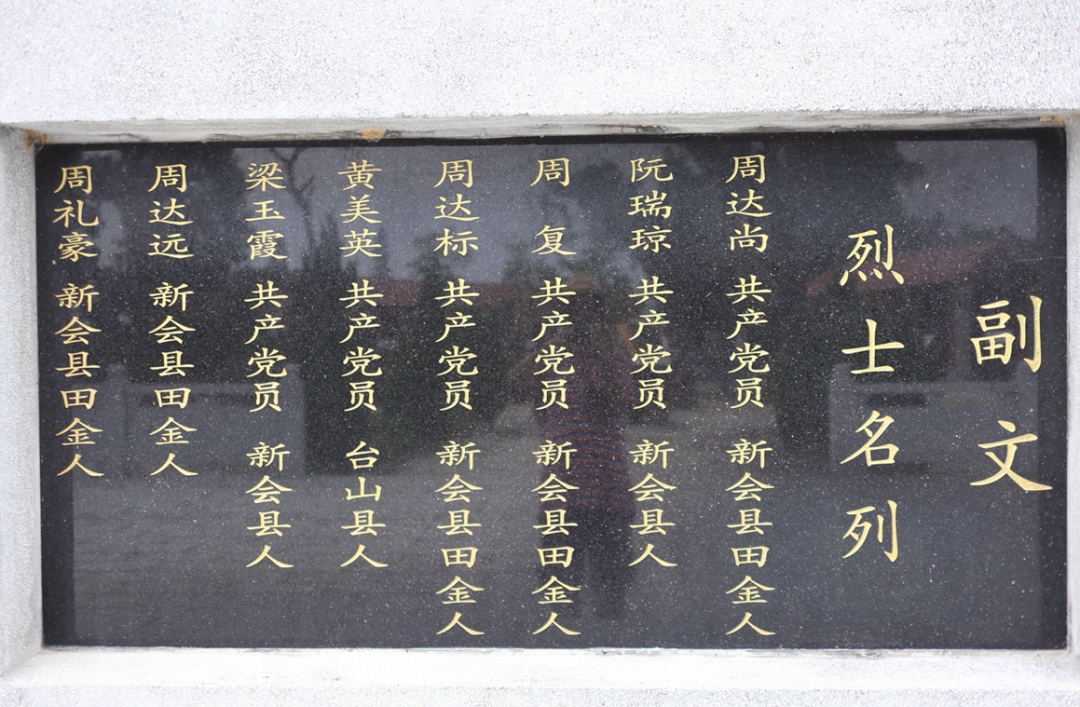 副文
烈士名列
周达尚 共产党员 新会县田金人
阮瑞琼 共产党员 新会县人
周 复 共产党员 新会县田金人
周达标 共产党员 新会县田金人
黄美英 共产党员 台山县人
梁玉霞 共产党员 新会县人
周达远 新会县田金人
周礼豪 新会县田金人